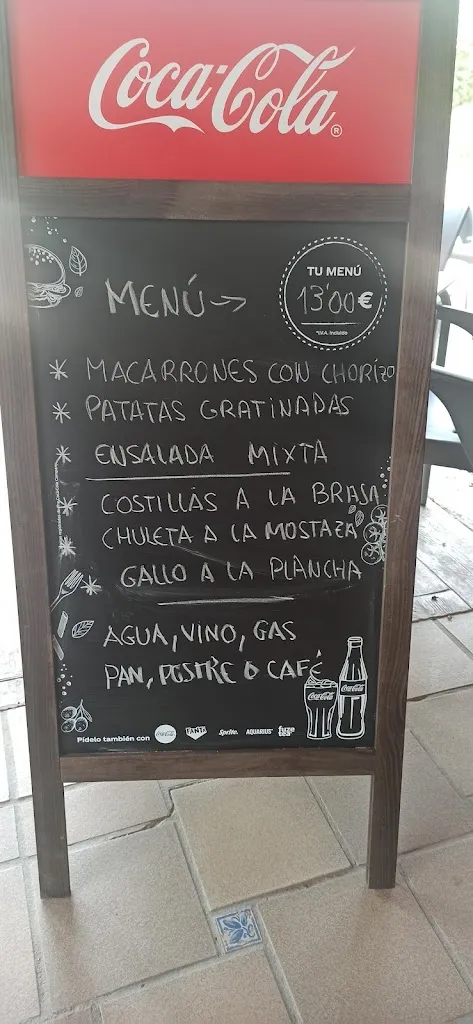 Coca-Cola®
TU MENÚ
MENÚ→ 13'00€
*I.V.A. incluido
* MACARRONES CON CHORIZO
* PATATAS GRATINADAS
* ENSALADA MIXTA
* COSTILLAS A LA BRASA
* CHULETA A LA MOSTAZA
* GALLO A LA PLANCHA
AGUA, VINO, GAS
PAN, POSTRE O CAFÉ
Coca-Cola Coca-Cola
Pídelo también con Coca-Cola FANTA Sprite. AQUARIUS fuze tea